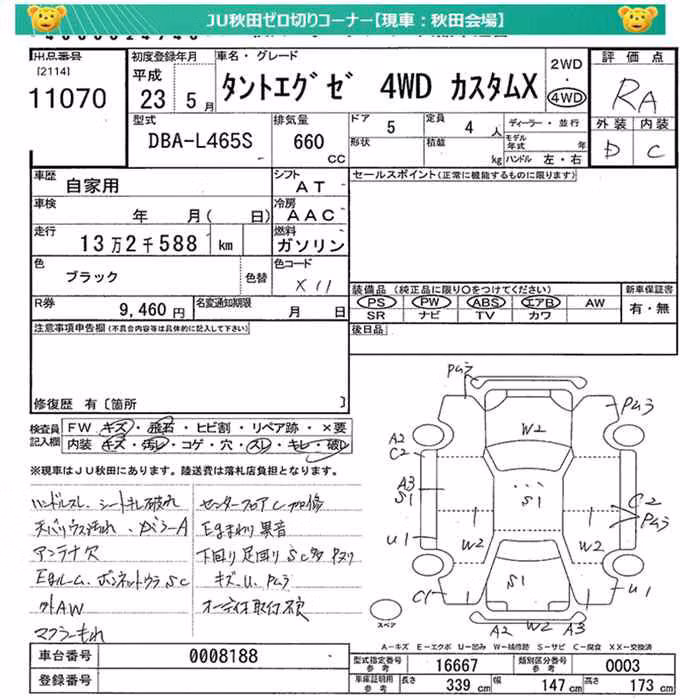 JU秋田ゼロ切りコーナー【現車：秋田会場】
出品番号
[2114]
11070
初度登録年月
平成
23 5月
車名・グレード
タントエグゼ 4WD カスタムX
2WD
・
4WD
評価点
RA
外装 内装
D C
型式
DBA-L465S
排気量
660
cc
ドア
5
定員
4人
ディーラー・並行
形状
積載
kg
モデル年式 年
ハンドル 左・右
車歴
自家用
シフト
AT
セールスポイント(正常に機能するものに限ります)
車検
年 月( 日)
冷房
AAC
走行
13万2千588 km
燃料
ガソリン
色
ブラック
色替
色コード
X11
装備品 (純正品に限り○をつけてください)
新車保証書
PS PW ABS エアB AW
SR ナビ TV カワ
有・無
R券
9,460円
名変通知期限
月 日
後日品
注意事項申告欄(不具合内容等は具体的に記入して下さい)
修復歴 有〔箇所 〕
検査員
記入欄
FW キズ・飛石・ヒビ割・リペア跡・×要
内装 キズ・汚レ・コゲ・穴・スレ・キレ・破レ
※現車はJU秋田にあります。陸送費は落札店負担となります。
ハンドルスレ、シートキレ破れ
アンテナ穴
Egルーム、ボンネットウラSC
外AW
マフラーもれ
センターフロアC加修
Egまわり異音
キズ、U、Pムラ
PムラPムラ
W2
A2
C2
A3
S1
S1
C2
Pムラ
U1
W2
W2
C1
S1
U1
A2 W2 A3
スペア
A-キズ E-エクボ U-凹み W-補修跡 S-サビ C-腐食 XX-交換済
車台番号
0008188
登録番号
型式指定番号
参考
16667
類別区分番号
参考
0003
車庫証明用
参考
長さ
339 cm
幅
147 cm
高さ
173 cm